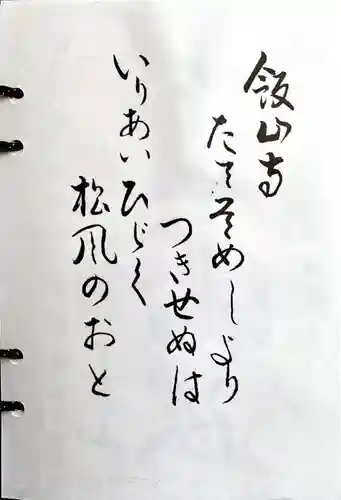 飯山寺
たてそめしより
つきせぬは
いりあいひゞく
松風のおと